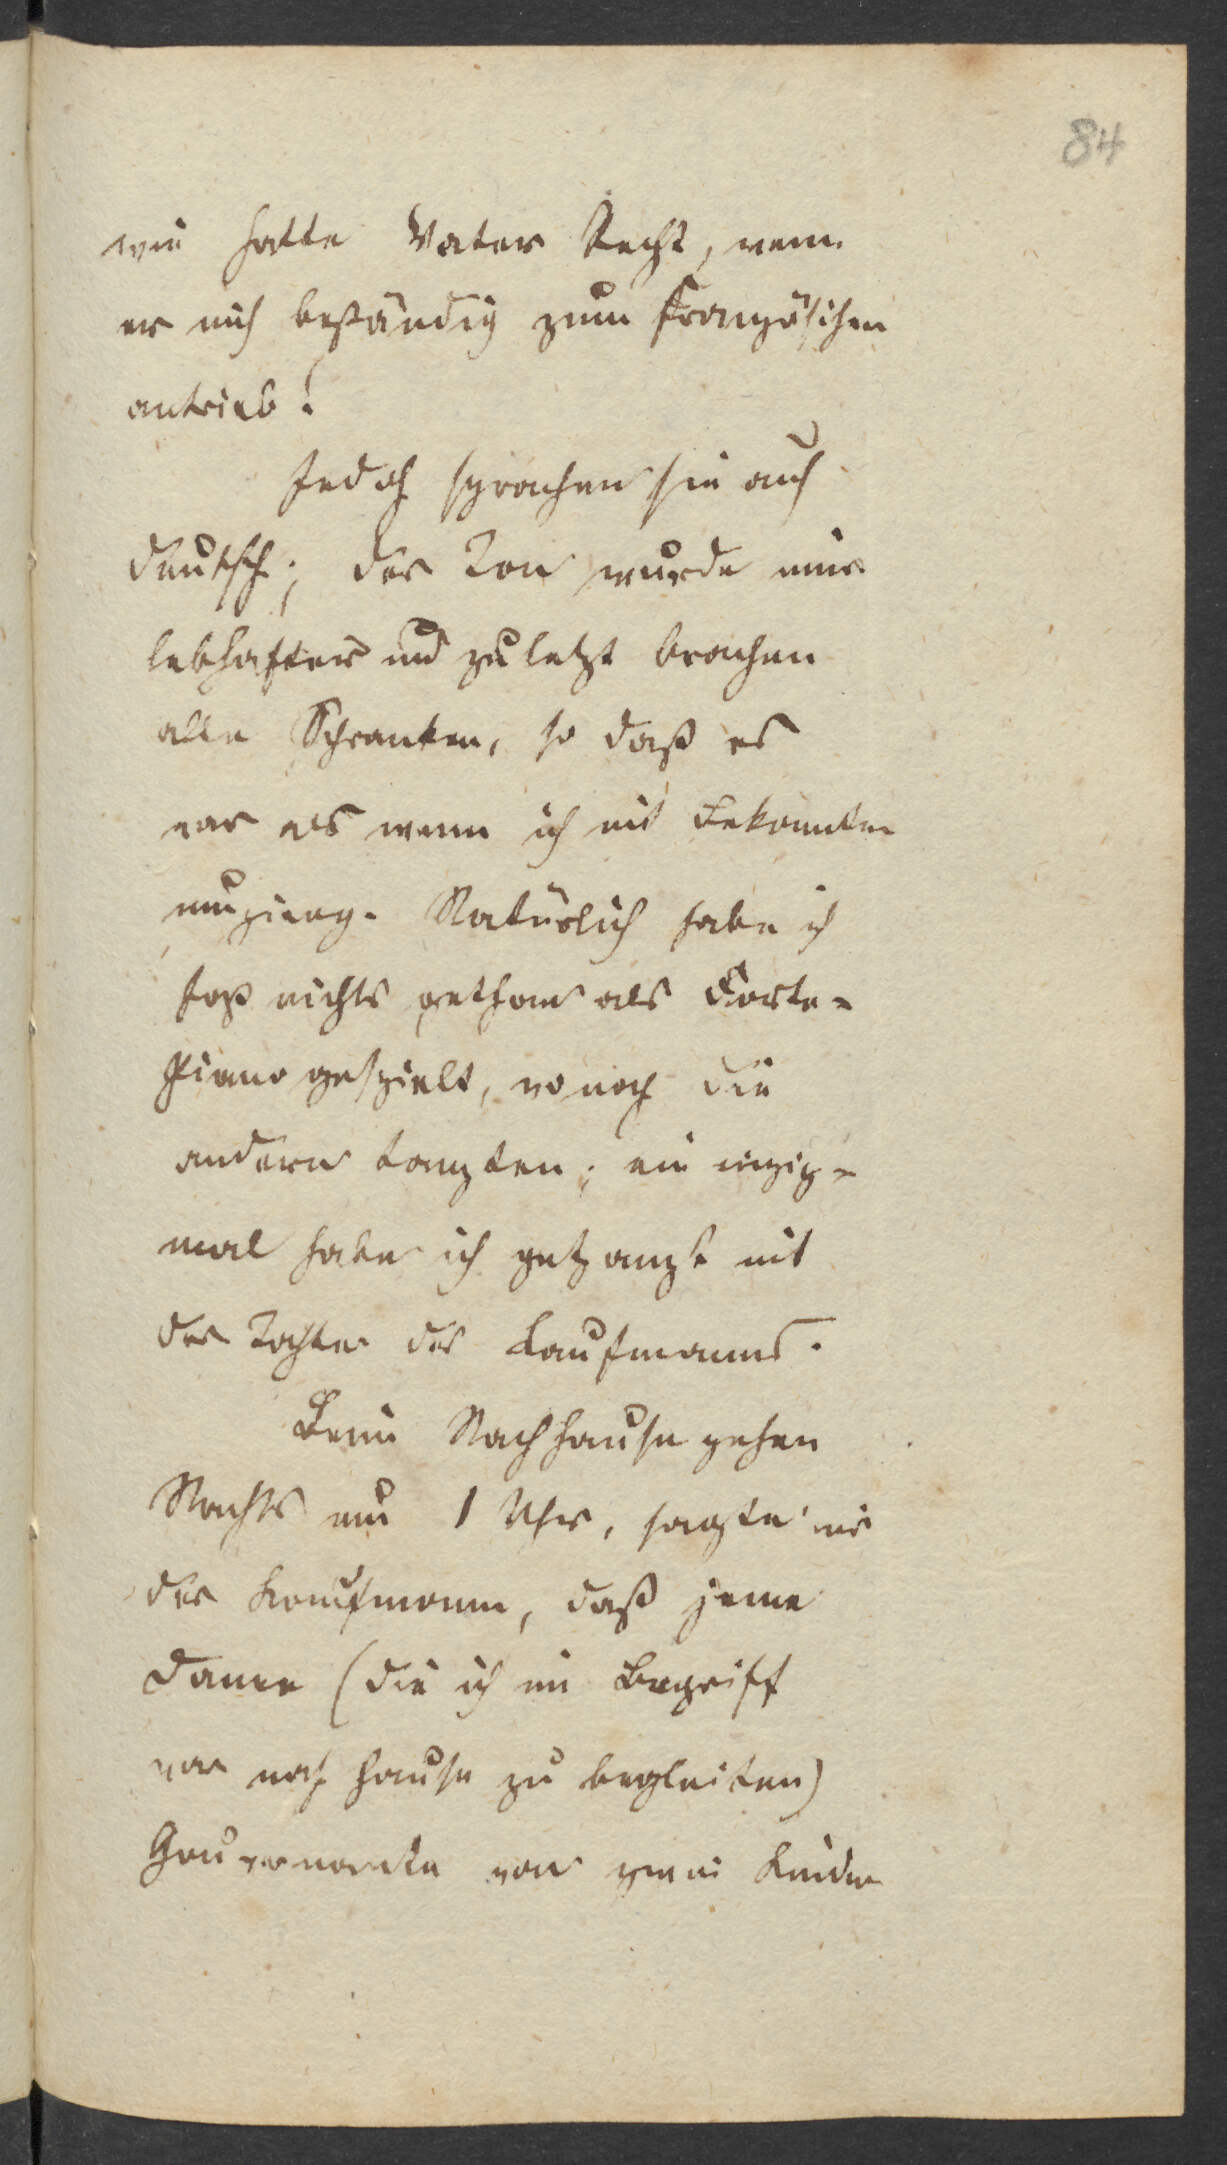 84
wie hatte Vater Recht, wenn
er mich beständig zum Französischen
antrieb!
Jedoch sprachen sie auch
deutsch; der Ton wurde immer
lebhafter und zuletzt brachen
alle Schranken, so daß es
war als wenn ich mit Bekannten
umging. Natürlich habe ich
fast nichts gethan als Forte-
Piano gespielt, wonach die
andern tanzten; ein einzig-
mal habe ich getanzt mit
der Tochter des Kaufmanns.
Beim Nachhause gehen
Nachts um 1 Uhr, sagte mir
der Kaufmann, daß jene
Dame (die ich im Begriff
war nach Hause zu begleiten)
Gouvernante von zwei Kindern